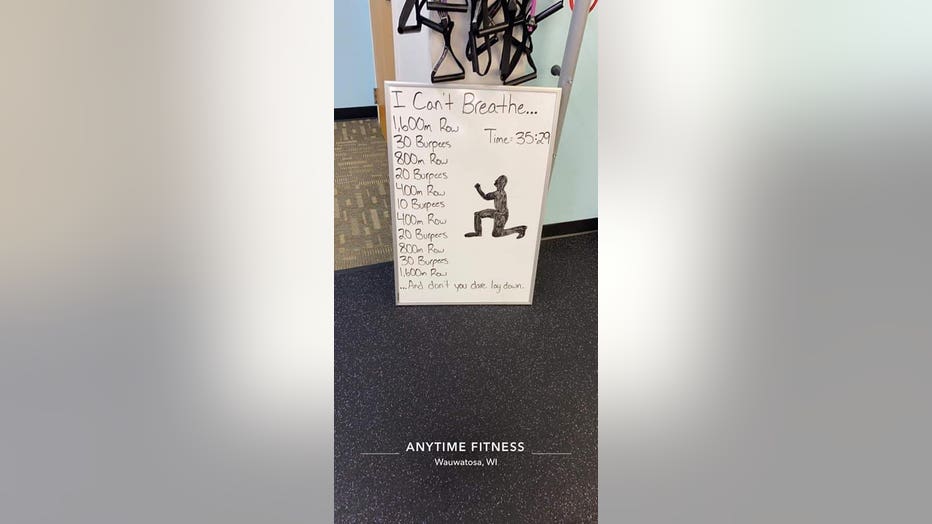 I Can't Breathe...
1,600m Row
Time= 35:29
30 Burpees
800m Row
20 Burpees
400m Row
10 Burpees
400m Row
20 Burpees
800m Row
30 Burpees
1,600m Row
...And don't you dare lay down.
ANYTIME FITNESS
Wauwatosa, WI